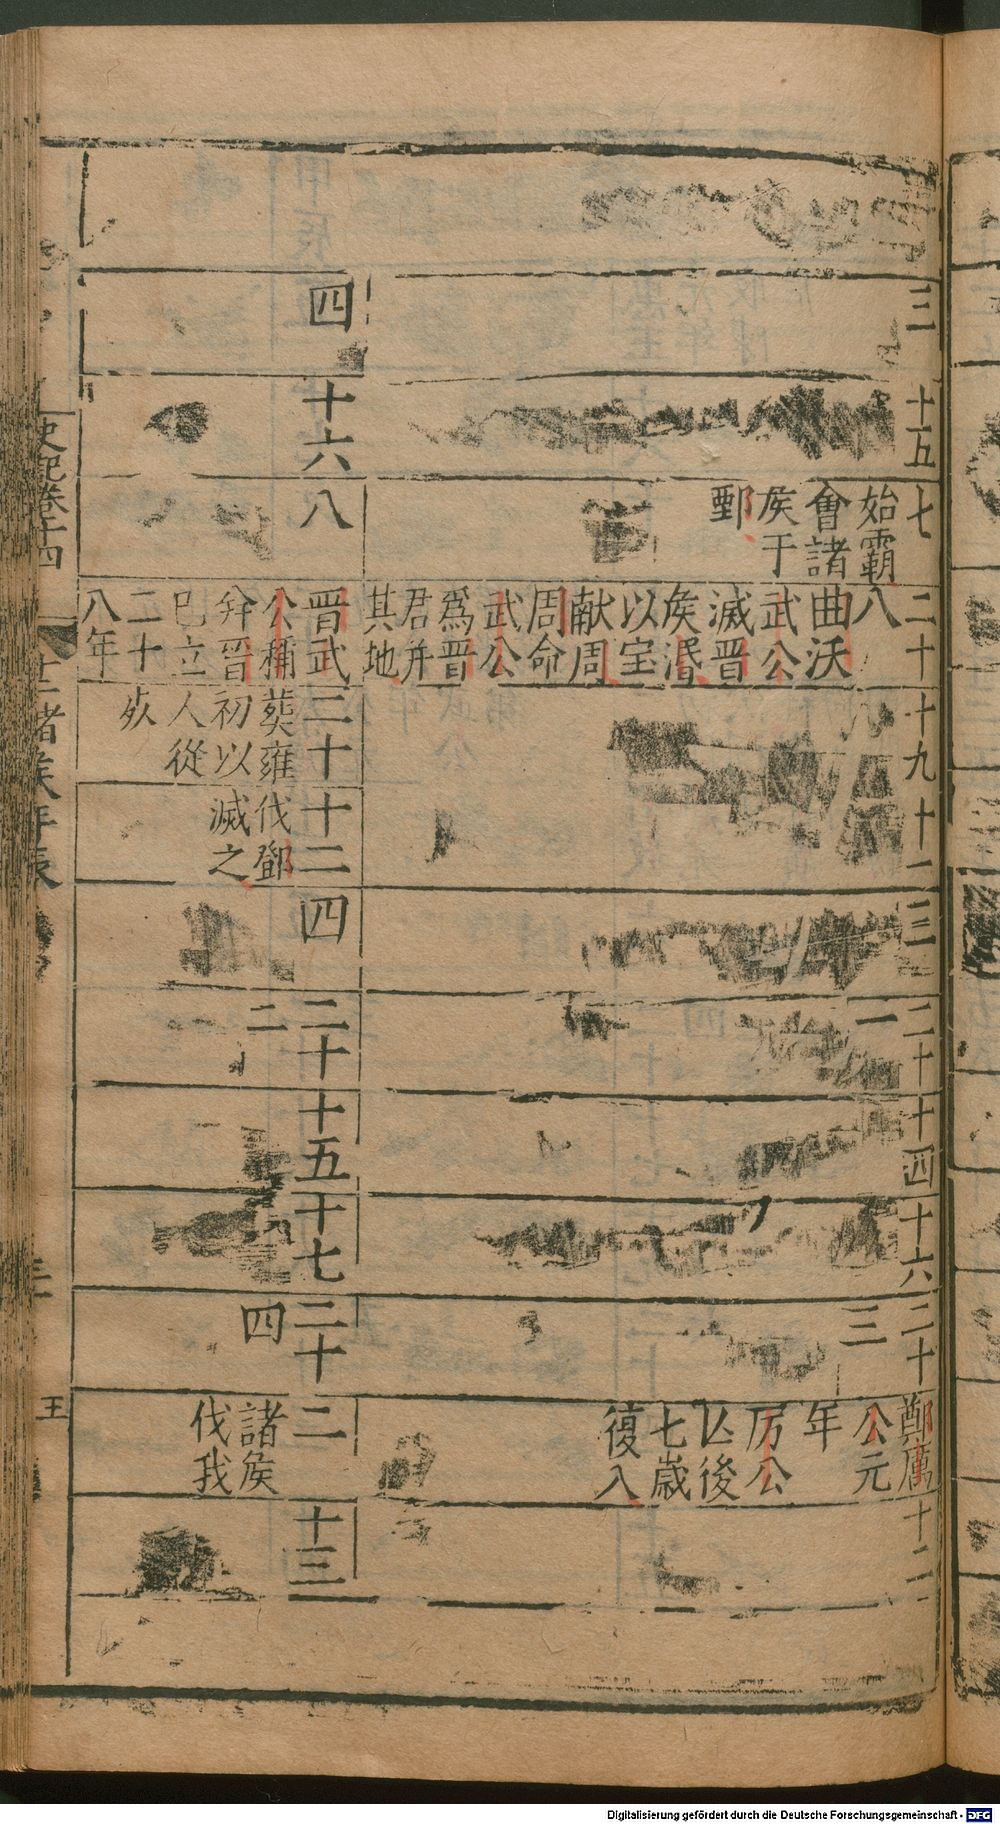 三
十五
七
始霸
會諸
矦于
鄄
二十
八
曲沃
武公
滅晋
矦湣
以宝
献周
周命
武公
為晋
君并
其地
十九
十二
三
二十
一
十四
十六
二十
三
鄭厲
公元
年
厉公
亾後
七歲
復入
十二
四
十六
八
晋武
公稱
并晋
巳立
二十
八年
二十
葬雍
初以
人從
死
十二
伐鄧
滅之
四
二十
二
十五
十七
二十
四
二
諸矦
伐我
十三
史記卷十四
十二諸矦年表
王
Digitalisierung gefördert durch die Deutsche Forschungsgemeinschaft - DFG